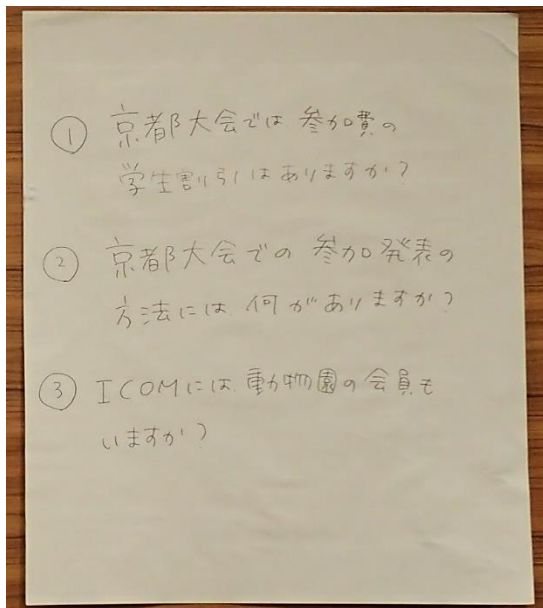 ① 京都大会では 参加費の
学生割引はありますか?
② 京都大会での 参加発表の
方法には 何がありますか?
③ ICOMには 動物園の会員も
いますか?